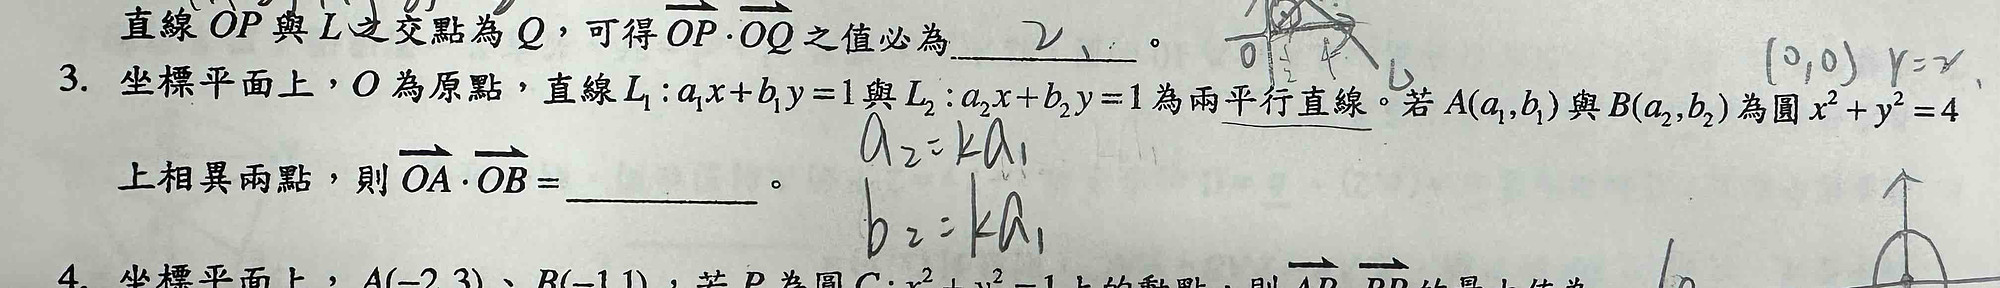 直線 OP 與 L 之交點為 Q，可得 OP·OQ 之值必為 2 。
(0,0) r=2
3. 坐標平面上，O 為原點，直線 L₁:a₁x+b₁y=1 與 L₂:a₂x+b₂y=1 為兩平行直線。若 A(a₁,b₁) 與 B(a₂,b₂) 為圓 x²+y²=4
a₂=ka₁
上相異兩點，則 OA·OB= 。
b₂=ka₁
4. 坐標平面上，A(−2,3)、B(−1,1)，若 P 為圓 C:x²+y²=1 上的動點，則 AP·BP 的最小值為